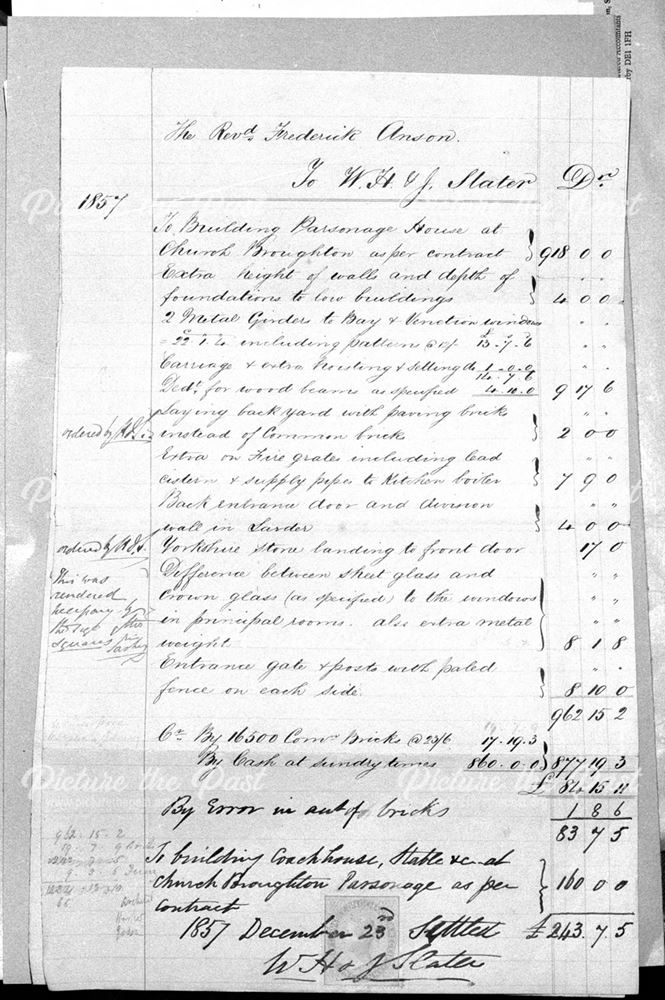 The Revd. Frederick Anson.
To W. H. & J. Slater Dr
1857
To Building Parsonage House at
Church Broughton as per contract } 918 0 0
Extra height of walls and depth of
foundations to low buildings } 4 0 0
2 Metal Girders to Bay & Venetian windows
including pattern @ 13.7.6
Carriage & extra hoisting & setting do 1.0.0
14.7.6
Dedt. for wood beams as specified 4.10.0 9 17 6
Laying back yard with paving bricks
ordered by instead of Common bricks } 2 0 0
Extra on Fire grates including lead
cistern & supply pipes to Kitchen boiler } 7 9 0
Back entrance door and division
wall in Larder } 4 0 0
ordered by Yorkshire Stone landing to front door 17 0
This was
rendered
necessary by
the size of the
squares in
Difference between sheet glass and
crown glass (as specified) to the windows
in principal rooms. also extra metal
weight } 8 1 8
Entrance gate & posts with paled
fence on each side. } 8 10 0
962 15 2
Cr. By 16500 Comn. Bricks @ 23/6 17.19.3
By Cash at sundry times 860.0.0 } 877 19 3
£ 84 15 11
By Error in acct of bricks 1 8 6
83 7 5
962 . 15 . 2
To building Coachhouse, Stable &c at
Church Broughton Parsonage as per
contract } 160 0 0
1857 December 23rd Settled £243.7.5
W H & J Slater
Picture the Past